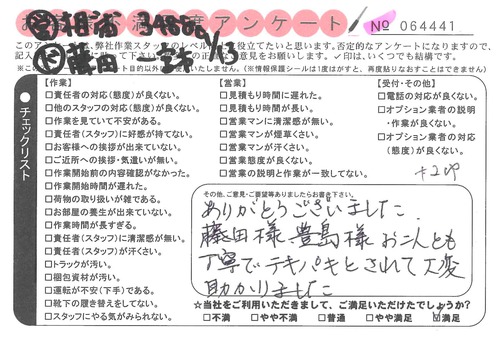 お客様満足度アンケート
№ 064441
このアンケートは、弊社作業スタッフのレベル向上に役立てたいと思います。否定的なアンケートになりますので、
※アンケート目的以外では使いません。(※情報保護シールは1度はがすと、再度貼りなおすことはできません)
チェックリスト
【作業】
□責任者の対応(態度)が良くない。
□他のスタッフの対応(態度)が良くない。
□作業を見ていて不安がある。
□責任者(スタッフ)に好感が持てない。
□お客様への挨拶が出来ていない。
□ご近所への挨拶・気遣いが無い。
□作業開始前の内容確認がなかった。
□作業開始時間が遅れた。
□荷物の取り扱いが雑である。
□お部屋の養生が出来ていない。
□作業時間が長すぎる。
□責任者(スタッフ)に清潔感が無い。
□責任者(スタッフ)が汗くさい。
□トラックが汚い。
□梱包資材が汚い。
□運転が不安(下手)である。
□靴下の履き替えをしてない。
□スタッフにやる気がみられない。
【営業】
□見積もり時間に遅れた。
□見積もり時間が長い。
□営業マンに清潔感が無い。
□営業マンが煙草くさい。
□営業マンが汗くさい。
□営業態度が良くない。
□営業の説明と作業が一致してない。
【受付・その他】
□電話の対応が良くない。
□オプション業者の説明
・作業が良くない。
□オプション業者の対応
(態度)が良くない。
その他、ご意見・ご要望等ありましたらお書き下さい。
ありがとうございました。
藤田様、豊島様お二人とも
丁寧でテキパキとされて大変
助かりました
☆当社をご利用いただきまして、ご満足いただけたでしょうか?
□不満 □やや不満 □普通 □やや満足 ☑満足